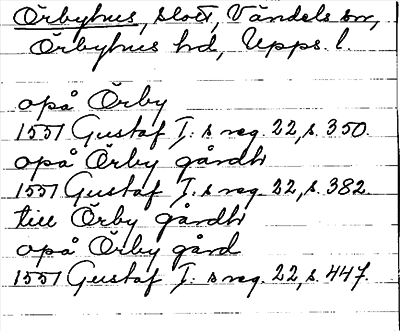 Örbyhus, slott, Vändels sn,
Örbyhus hd, Upps. l.
opå Örby
1551 Gustaf I:s reg. 22, s. 350.
opå Örby gårdh
1551 Gustaf I:s reg. 22, s. 382.
till Örby gårdh
opå Örby gård
1551 Gustaf I:s reg. 22, s. 447.